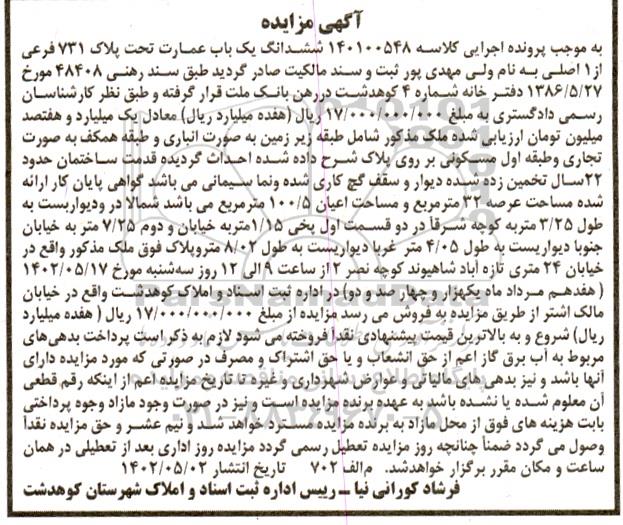 آگهی مزایده
به موجب پرونده اجرایی کلاسه ۱۴۰۱۰۰۵۴۸ ششدانگ یک باب عمارت تحت پلاک ۷۳۱ فرعی
از ۱ اصلی به نام ولی مهدی پور ثبت و سند مالکیت صادر گردید طبق سند رهنی ۴۸۴۰۸ مورخ
۱۳۸۶/۵/۲۷ دفتر خانه شماره ۴ کوهدشت دررهن بانک ملت قرار گرفته و طبق نظر کارشناسان
رسمی دادگستری به مبلغ ۱۷/۰۰۰/۰۰۰/۰۰۰ ریال (هفده میلیارد ریال) معادل یک میلیارد و هفتصد
میلیون تومان ارزیابی شده ملک مذکور شامل طبقه زیر زمین به صورت انباری و طبقه همکف به صورت
تجاری وطبقه اول مسکونی بر روی پلاک شرح داده شده احداث گردیده قدمت ساختمان حدود
۲۲سال تخمین زده شده دیوار و سقف گچ کاری شده ونما سیمانی می باشد گواهی پایان کار ارائه
شده مساحت عرصه ۳۲ مترمربع و مساحت اعیان ۱۰۰/۵ مترمربع می باشد شمالا در ودیواریست به
طول ۳/۲۵ متربه کوچه شرقاً در دو قسمت اول پخی ۱/۱۵متربه خیابان و دوم ۷/۲۵ متر به خیابان
جنوبا دیواریست به طول ۴/۰۵ متر غربا دیواریست به طول ۸/۰۲ متروپلاک فوق ملک مذکور واقع در
خیابان ۲۴ متری تازه آباد شاهیوند کوچه نصر ۲ از ساعت ۹ الی ۱۲ روز سه‌شنبه مورخ ۱۴۰۲/۰۵/۱۷
( هفدهم مرداد ماه یکهزار و چهار صد و دو) در اداره ثبت اسناد و املاک کوهدشت واقع در خیابان
مالک اشتر از طریق مزایده به فروش می رسد مزایده از مبلغ ۱۷/۰۰۰/۰۰۰/۰۰۰ ریال ( هفده میلیارد
ریال) شروع و به بالاترین قیمت پیشنهادی نقداً فروخته می شود لازم به ذکر است پرداخت بدهی‌های
مربوط به آب برق گاز اعم از حق انشعاب و یا حق اشتراک و مصرف در صورتی که مورد مزایده دارای
آنها باشد و نیز بدهی های مالیاتی و عوارض شهرداری و غیره تا تاریخ مزایده اعم از اینکه رقم قطعی
آن معلوم شده یا نشده باشد به عهده برنده مزایده است و نیز در صورت وجود مازاد وجوه پرداختی
بابت هزینه های فوق از محل مازاد به برنده مزایده مسترد خواهد شد و نیم عشر و حق مزایده نقداً
وصول می گردد ضمناً چنانچه روز مزایده تعطیل رسمی گردد مزایده روز اداری بعد از تعطیلی در همان
ساعت و مکان مقرر برگزار خواهدشد. م الف ۷۰۲ تاریخ انتشار ۱۴۰۲/۰۵/۰۲
فرشاد کورانی نیا ـ رییس اداره ثبت اسناد و املاک شهرستان کوهدشت